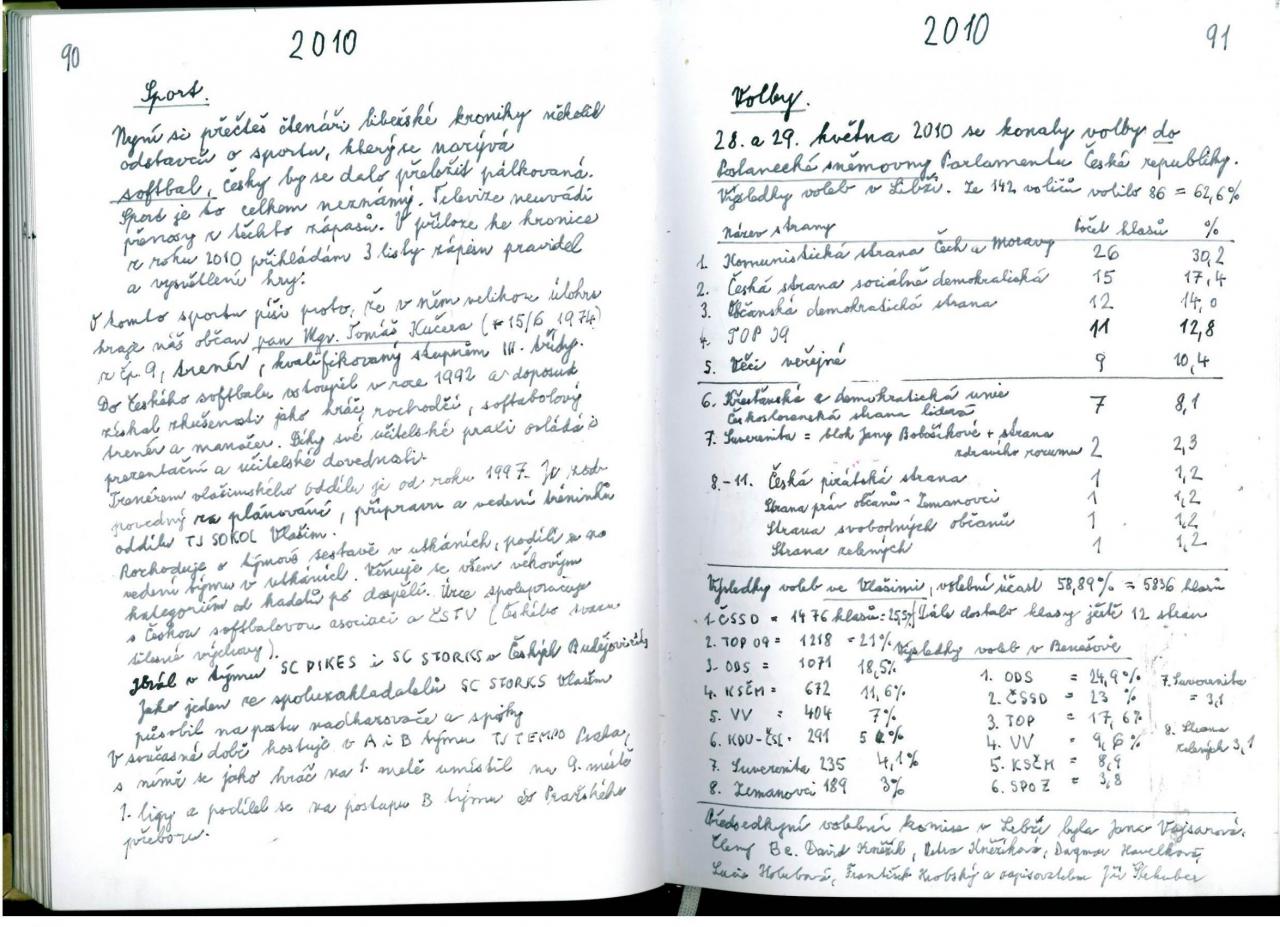 90
2010
Sport.
Nyní si přečteš čtenáři libežské kroniky několik
odstavců o sportu, který se nazývá
softbal, česky by se dalo přeložit pálkovaná.
Sport je to celkem neznámý. Televize neuvádí
přenosy z těchto zápasů. V příloze ke kronice
z roku 2010 přikládám 3 listy zápisu pravidel
a vysvětlení hry.
O tomto sportu píši proto, že v něm velikou úlohu
hraje náš občan pan Mgr. Tomáš Kučera (* 15/6 1974)
z čp. 9, trenér, kvalifikovaný stupněm III. třídy.
Do českého softbalu vstoupil v roce 1992 a doposud
získal zkušenosti jako hráč, rozhodčí, softabolový
trenér a manažer. Díky své učitelské praxi ovládá i
prezentační a učitelské dovednosti.
Trenérem vlašimského oddílu je od roku 1997. Je zod-
povědný za plánování, přípravu a vedení tréninků
oddílu TJ SOKOL Vlašim.
Rozhoduje o týmové sestavě v utkáních, podílí se na
vedení týmu v utkáních. Věnuje se všem věkovým
kategoriím od kadetů po dospělé. Úzce spolupracuje
s Českou softbalovou asociací a ČSTV (Českého svazu
tělesné výchovy).
Hrál v týmu SC DIKES i SC STORKS v Českých Budějovicích
Jako jeden ze spoluzakladatelů SC STORKS Vlašim
působil na postu nadhazovače a spojky
V současné době hostuje v A i B týmu TJ TEMPO Praha,
s nímž se jako hráč na 1. metě umístil na 9. místě
1. ligy a podílel se na postupu B týmu do Pražského
přeboru.
2010
91
Volby.
28. a 29. května 2010 se konaly volby do
Poslanecká sněmovny Parlamentu Česká republiky.
Výsledky voleb v Libži. Ze 142 voličů volilo 86 = 62,6%
Název strany Počet hlasů %
1. Komunistická strana Čech a Moravy 26 30,2
2. Česká strana sociálně demokratická 15 17,4
3. Občanská demokratická strana 12 14,0
4. TOP 09 11 12,8
5. Věci veřejné 9 10,4
6. Křesťanská a demokratická unie
Československá strana lidová 7 8,1
7. Suverenita = blok Jany Bobošíkové + strana
zdravího rozumu 2 2,3
8.-11. Česká pirátská strana 1 1,2
Strana práv občanů - Zemanovci 1 1,2
Strana svobodných občanů 1 1,2
Strana zelených 1 1,2
Výsledky voleb ve Vlašimi, volební účast 58,89% = 5836 hlasů
1. ČSSD = 1476 hlasů = 25,5% Dále dostalo hlasy ještě 12 stran
2. TOP 09 = 1218 = 21%
3. ODS = 1071 18,5%
4. KSČM = 672 11,6%
5. VV = 404 7%
6. KDU-ČSL = 291 5%
7. Suverenita 235 4,1%
8. Zemanovci 189 3%
Výsledky voleb v Benešově
1. ODS = 24,9%
2. ČSSD = 23 %
3. TOP = 17,6%
4. VV = 9,6%
5. KSČM = 8,9
6. SPOZ = 3,8
7. Suverenita
= 3,1
8. Strana
zelených 3,1
Předsedkyní volební komise v Lebži byla Jana Vojsarová,
Členy Bc. David Kněžík, Petra Kněžíková, Dagmar Havelková,
Lucie Holubová, František a zapisovatelem Jiří